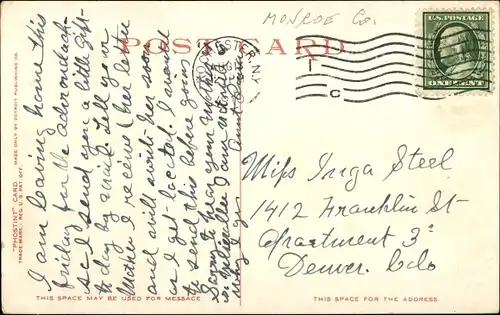 MONROE Co.
POST CARD
U.S. POSTAGE
ONE CENT
C
"PHOSTINT" CARD. MADE ONLY BY DETROIT PUBLISHING CO.
TRADE MARK. REG. U.S. PAT. OFF.
I am leaving home this
Friday for the Adirondacks
so I send you a little gift
to day by mail. Tell your
Mother I received her letter
and will write her soon
as I get located. I want
to send this before going
Sorry to hear your Mother
Aunt
Miss Inga Steel
1412 Franklin St
Apartment 3
Denver. Colo
THIS SPACE MAY BE USED FOR MESSAGE
THIS SPACE IS FOR THE ADDRESS.